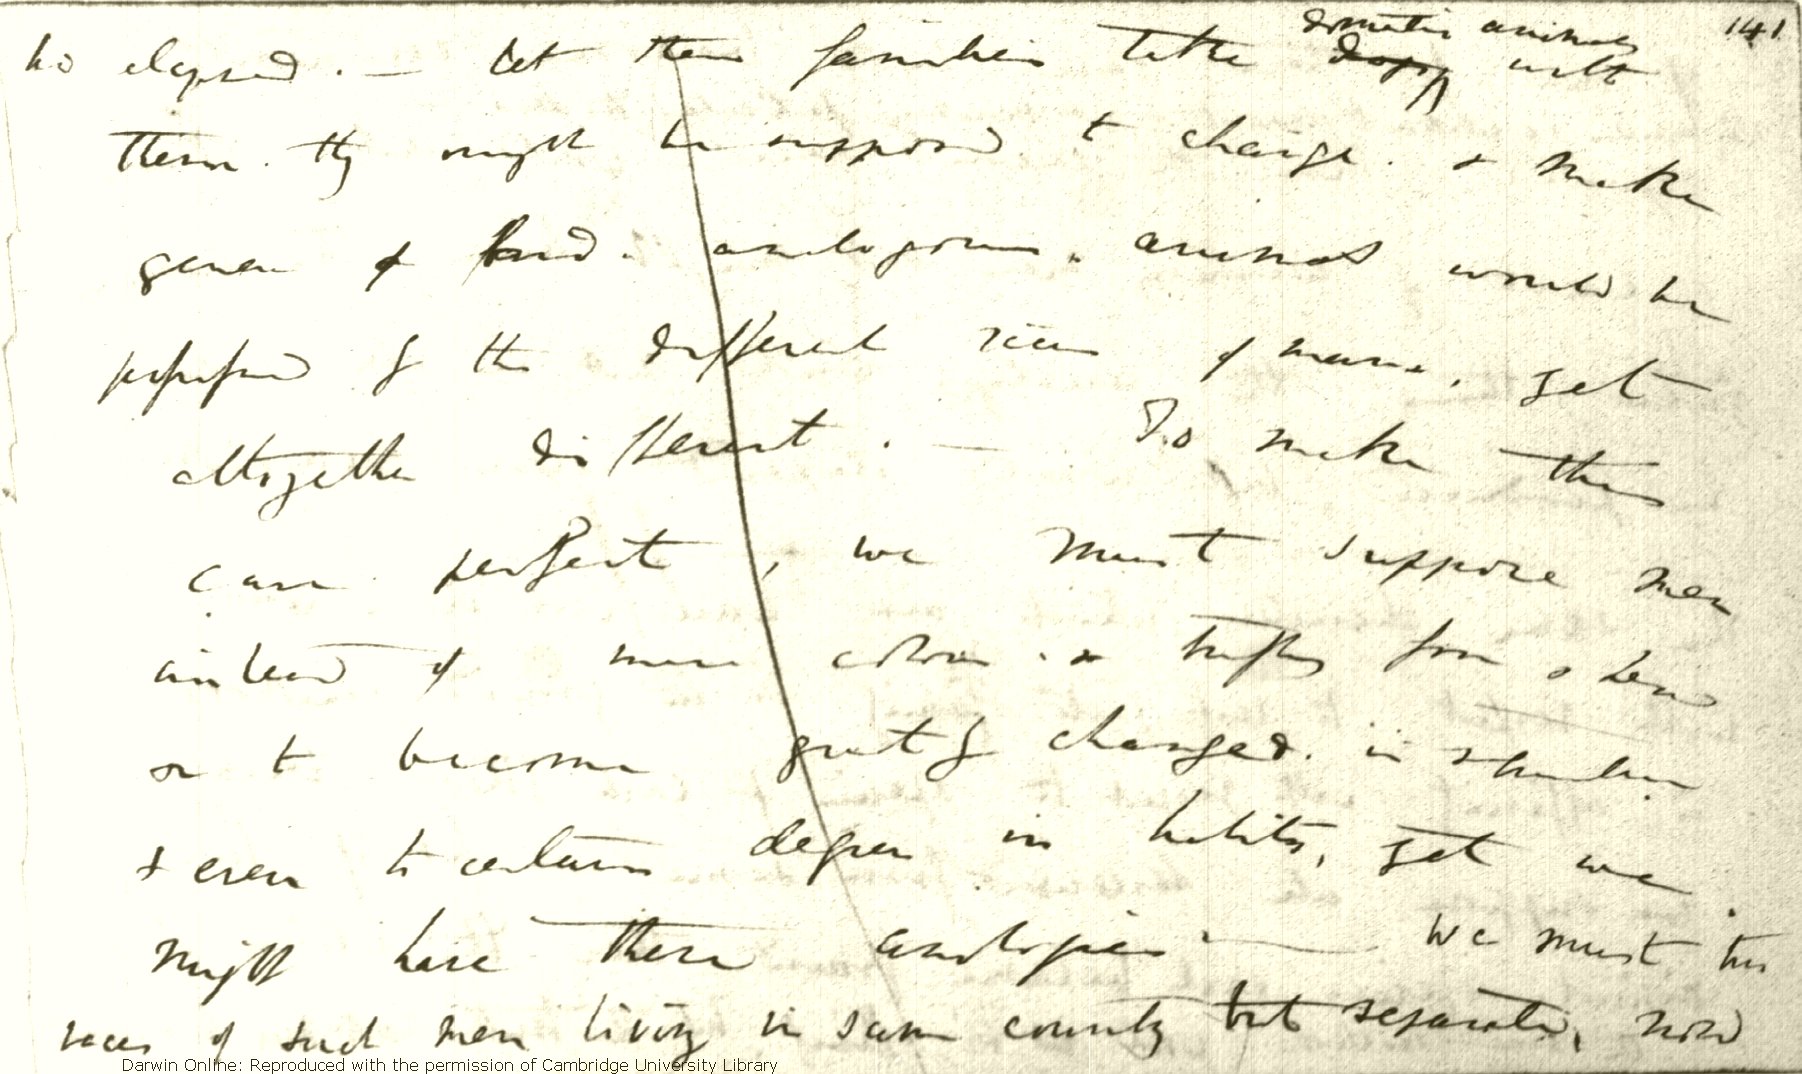 141
domestic animals
be elapsed . — let these families take dogs with
them. they might be supposed to change. & make
genera of kind. analogous. animals would be
possessed by the different races of mans, yet
altogether different . — To make this
case perfect, we must suppose man
instead of mere colour . & trifling form & hair
or to become greatly changed. in structure
& even to certain degree in habits, yet we
might have these analogies — We must have
races of such men living in same country but separate, now
Darwin Online: Reproduced with the permission of Cambridge University Library